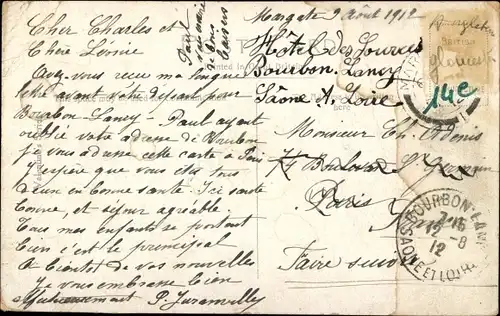 Margate 9 Août 1912
Cher Charles et
Chère Léonie
Avez-vous reçu ma longue
lettre avant votre départ pour
Bourbon Lancy - Paul ayant
oublié votre adresse de Bourbon
je vous adresse cette carte à Paris
j'espère que vous êtes tous
deux en bonne santé. Ici santé
bonne, et séjour agréable.
Tous mes enfants se portent
bien c'est le principal
A bientôt de vos nouvelles
Je vous embrasse bien
affectueusement P.
Hôtel des Sources
Bourbon Lancy
Saône & Loire
Monsieur Ch.
74 Boulevard St Germain
Paris
Faire suivre
14e
here
BOURBON-LANCY
12
SAONE ET LOIRE